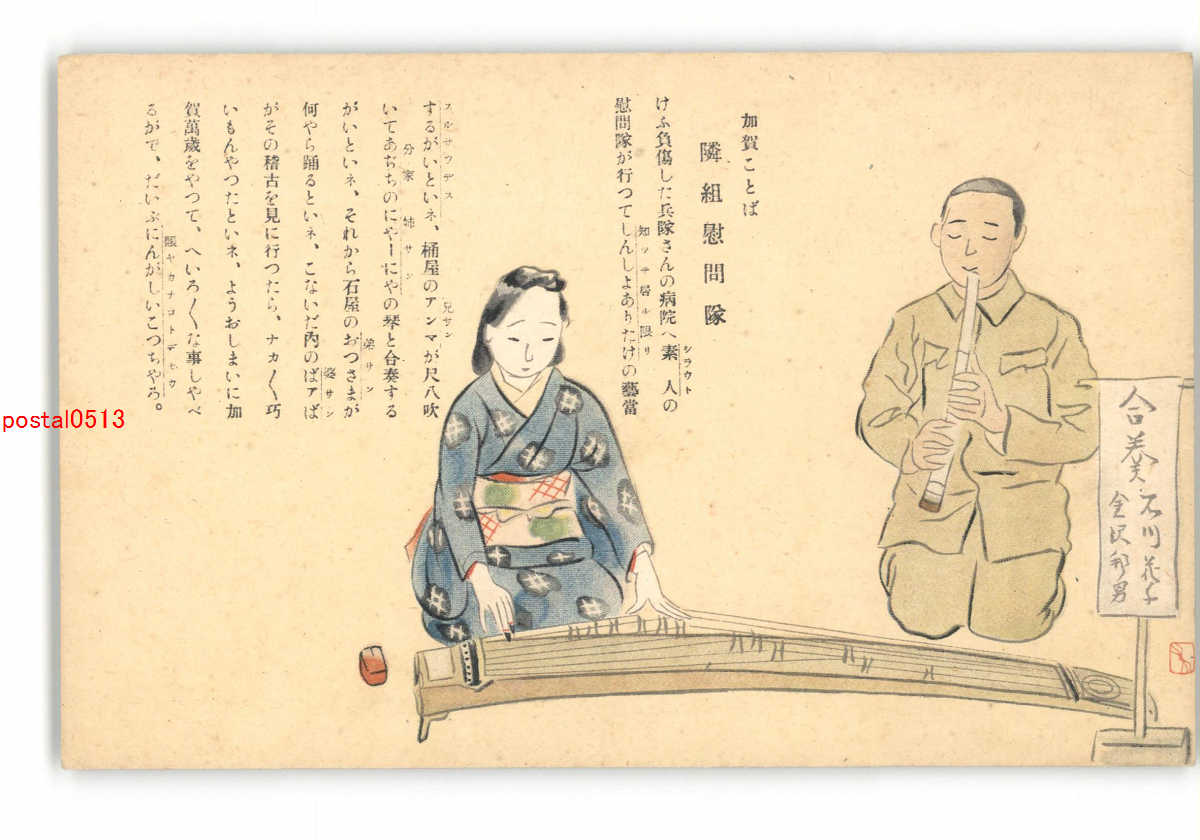 加賀ことば
隣組慰問隊
けふ負傷した兵隊さんの病院へ素人の
シラウト
慰問隊が行つてしんしよありたけの藝當
知ツテ居ル限リ
するがいといネ、桶屋のアンマが尺八吹
スルサウデス
兄サン
いてあぢちのにやーにやの琴と合奏する
分家
姉サン
がいといネ、それから石屋のおつさまが
弟サン
何やら踊るといネ、こないだ内のばアば
婆サン
がその稽古を見に行つたら、ナカ〱巧
いもんやつたといネ、ようおしまいに加
賀萬歳をやつて、へいろ〱な事しやべ
るがで、だいぶにんがしいこつちやろ。
賑ヤカナコトデセウ
合奏
石川花子
金沢邦男
postal0513